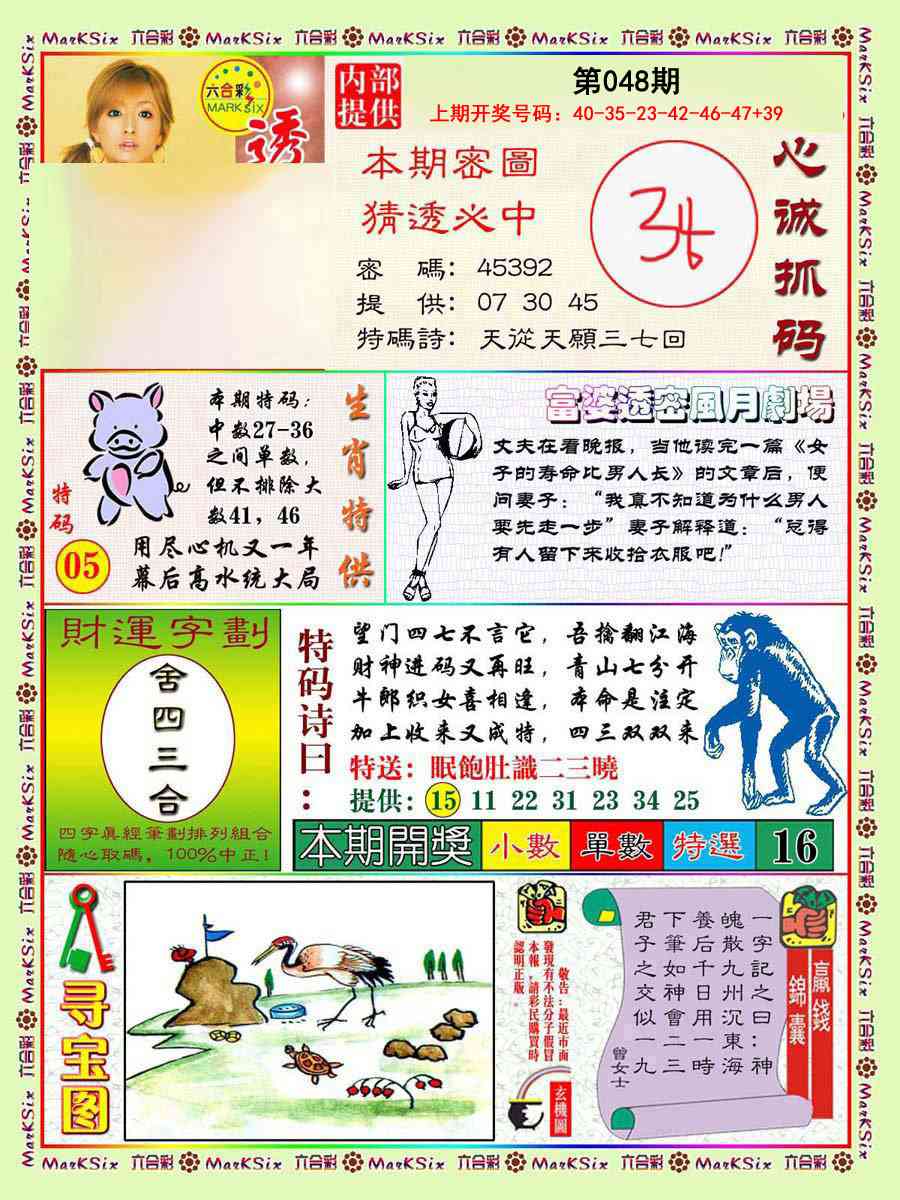 MarKSix 六合彩 MarKSix 六合彩 MarKSix 六合彩 MarKSix 六合彩 MarKSix 六合彩
六合彩
MARK six
诱
内部
提供
第048期
上期开奖号码：40-35-23-42-46-47+39
本期密圖
猜透必中
密　碼：45392
提　供：07 30 45
特碼詩：天從天願三七回
心诚抓码
本期特码：
中数27-36
之间单数，
但不排除大
数41，46
特码
05
用尽心机又一年
幕后高水统大局
生肖特供
富婆透密風月劇場
丈夫在看晚报，当他读完一篇《女
子的寿命比男人长》的文章后，便
问妻子：“我真不知道为什么男人
要先走一步”妻子解释道：“总得
有人留下来收拾衣服吧！”
財運字劃
舍四三合
四字真經筆劃排列組合
隨心取碼，100%中正！
特码诗曰：
望门四七不言它，吾擒翻江海
财神进码又再旺，青山七分开
牛郎织女喜相逢，本命是注定
加上收来又成特，四三双双来
特送：眠飽肚識二三曉
提供：15 11 22 31 23 34 25
本期開獎 小數 單數 特選 16
寻宝图
敬告：最近市面
發現有不法分子假冒
本報，請彩民購買時
認明正版。
玄機圖
一字記之曰：神
魄散九州沉東海
養后千日用一時
下筆如神會二三
君子之交似一九
曾女士
贏錢
錦囊
MarKSix 六合彩 MarKSix 六合彩 MarKSix 六合彩 MarKSix 六合彩 MarKSix 六合彩